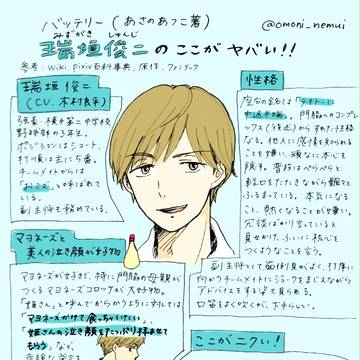 バッテリー(あさのあつこ著)
@omoni_nemui
みずがき しゅんじ
瑞垣俊二のここがヤバい!!
参考:wiki、pixiv百科事典、原作、ファンブック
瑞垣俊二
(C.V. 木村良平)
横手第二中学校
野球部の3年生。
ポジションはショート、
打順は主に5番。
チームメイトからは
「おミズ」と呼ばれて
いる。
副主将も務めている。
性格
座右の銘は「テキトーに
中途半端」。門脇へのコンプレ
ックス
なる。他人に感情を知られる
ことを嫌い、頑なに本心を
隠す。普段はへらへらと
軽口をたたきながら飄々と
ふるまっている。本気になる
こと、熱くなることが嫌い。
冗談ばかり言っていると
見せかけ、ふいに核心を
つくようなことを言う。
副主将として面倒見がよく、打席に
向かうチームメイトにジョークをまじえながら
アドバイスをする姿も見られる。
口笛をよく吹くが、下手らしい。
マヨネーズと
美人の泣き顔が好物
マヨネーズが好きで、特に門脇の母親が
つくるマヨネーズコロッケが大好物。
「姫さん」と呼んでからかう巧に対しては
「マヨネーズかけて食っちゃいたい」、
「姫さんの泣き顔をたっぷり拝ませて
もらう」など、
ここがニクい!